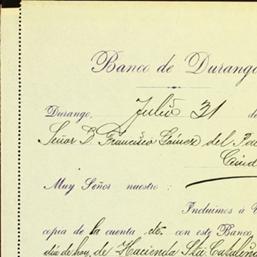 Banco de Durango
Durango, Julio 31 de
Señor D. Francisco Gómez del P
Ciud
Muy Señor nuestro:
Incluimos á
copia de la cuenta de con este Banco,
día de hoy, de Hacienda Sta Catalina